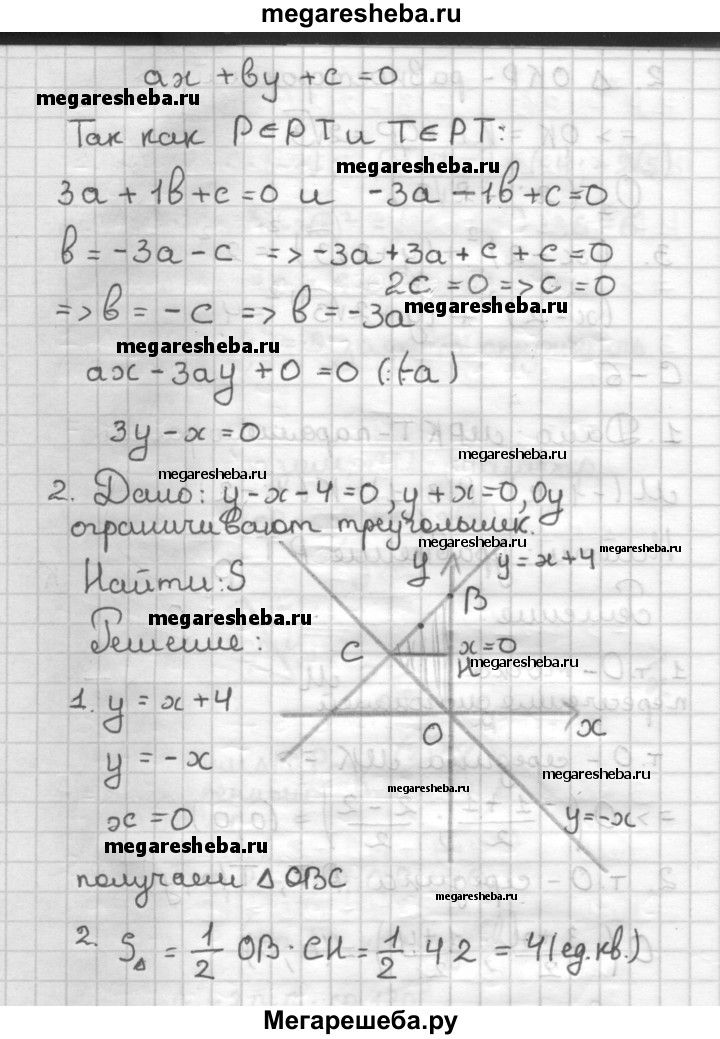 megaresheba.ru
ax + by + c = 0
megaresheba.ru
Так как P∈PT и T∈PT:
megaresheba.ru
3a + 1b + c = 0 и -3a - 1b + c = 0
b = -3a - c => -3a + 3a + c + c = 0
2c = 0 => c = 0
=> b = -c => b = -3a
megaresheba.ru
megaresheba.ru
ax - 3ay + 0 = 0 (:(-a)
3y - x = 0
megaresheba.ru
megaresheba.ru
2. Дано: y - x - 4 = 0, y + x = 0, Oy
ограничивают треугольник.
megaresheba.ru
megaresheba.ru
Найти: S
y
y = x + 4
B
megaresheba.ru
Решение:
C
x = 0
H
megaresheba.ru
1. y = x + 4
O
x
y = -x
megaresheba.ru
megaresheba.ru
x = 0
y = -x
megaresheba.ru
получаем Δ OBC
megaresheba.ru
2. SΔ = 1/2 OB · CH = 1/2 · 4 2 = 4 (ед.кв.)
Мегарешеба.ру